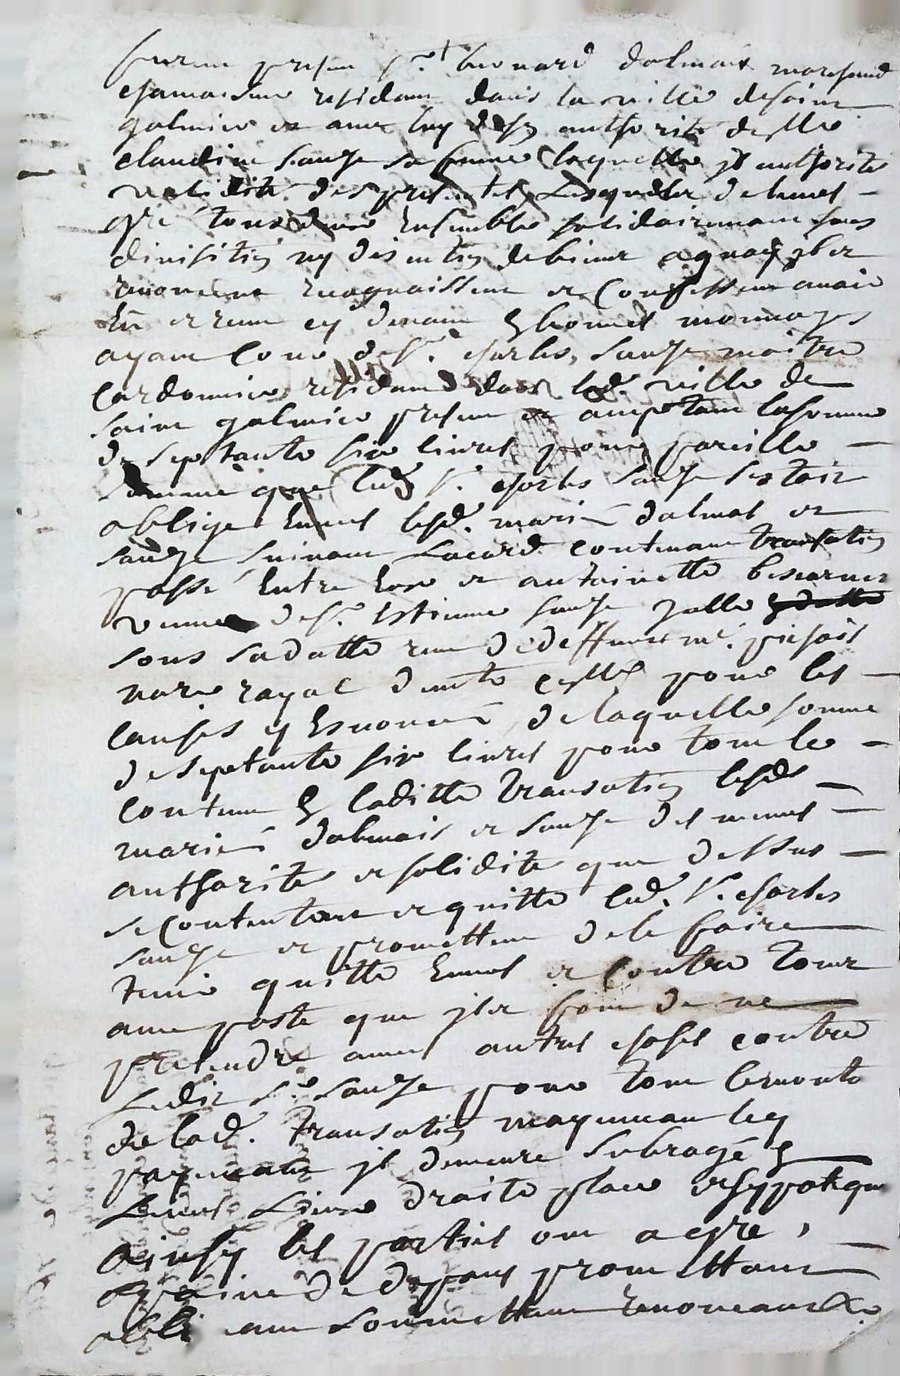 furent presens sr bernard dalmais marchand
chamoiseur residant dans la ville de saint
galmier et avec luy de son authorite dlle
claudine sauze sa femme laquelle jl authorise
validité des presentes lesquels de leurs
gré tous deux ensemble solidairement sans
division ny discution de biens a quoy jls
renoncent recognoissent et confessent avoir
eu et receu cy devant en bonnes monnoyes
ayant cours de sr charles sauze maitre
cordonnier residant dans lad. ville de
saint galmier present et acceptant la somme
de septante six livres pour pareille
somme que led sr charles sauze sestoit
obligé envers lesd. mariés dalmais et
sauze suivant lacord contenant transation
passé entre eux et antoinette bescornes
veuve de sr estienne sauze
sous sa datte receu dedeffunct me. pichois
nore royal d'icelle pour les
causes y enoncés de laquelle somme
de septante six livres pour tout le
contenu en laditte transation lesds
mariés dalmais et sauze des memes
authorité et solidité que dessus
se contentent et quitte led. sr. charles
sauze et promettent de le faire
tenir quitte envers et contre tous
avec poste que jls font de ne
pretendre aucunes autres choses contre
ledit sr sauze pour tout le contenu
de lad. transation moyennant ley
payement jl demeure subrogé en
leurs lieux droits place et hypoteque
ainsy les parties ont agree,
a peine de depans promettans
obligeans soumettans renonceans &c.